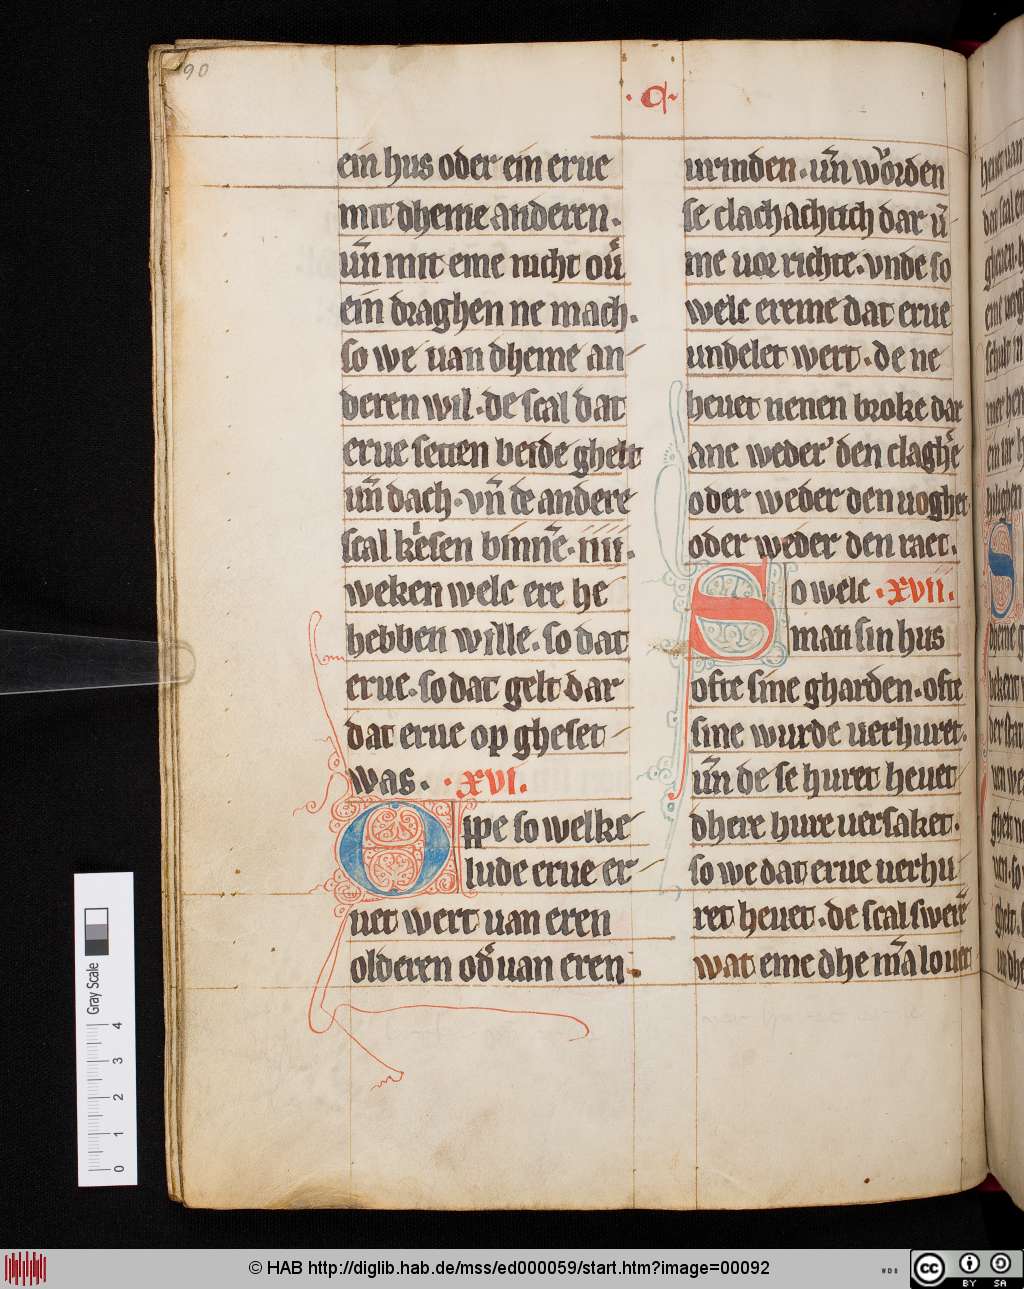 90
·C·
ein hus oder ein erue
mit dheme anderen·
uñ mit eme nicht ou͛
ein draghen ne mach·
so we uan dheme an
deren wil·de scal dat
erue setten beide ghelt
uñ dach·vñ de andere
scal kesen binnē·iiii·
weken welc ere he
hebben wille·so dat
erue·so dat gelt dar
dat erue op gheset
was· ·XVI·
Oppe so welke
lude erue er
uet wert uan eren
olderen od͛ uan eren·
urinden·uñ worden
se clachachtich dar ū
me uor richte·vnde so
welc ereme dat erue
undelet wert·de ne
heuet nenen broke dar
ane weder den claghē
oder weder den uoghet
oder weder den raet·
So welc ·XVII·
man sin hus
ofte sine gharden·ofte
sine wurde uerhuret·
uñ de se huret heuet
dhere hure uersaket·
so we dat erue uerhu
ret heuet·de scal swerē
wat eme dhe mā louet
Gray Scale
0 1 2 3 4
© HAB http://diglib.hab.de/mss/ed000059/start.htm?image=00092
cc BY SA